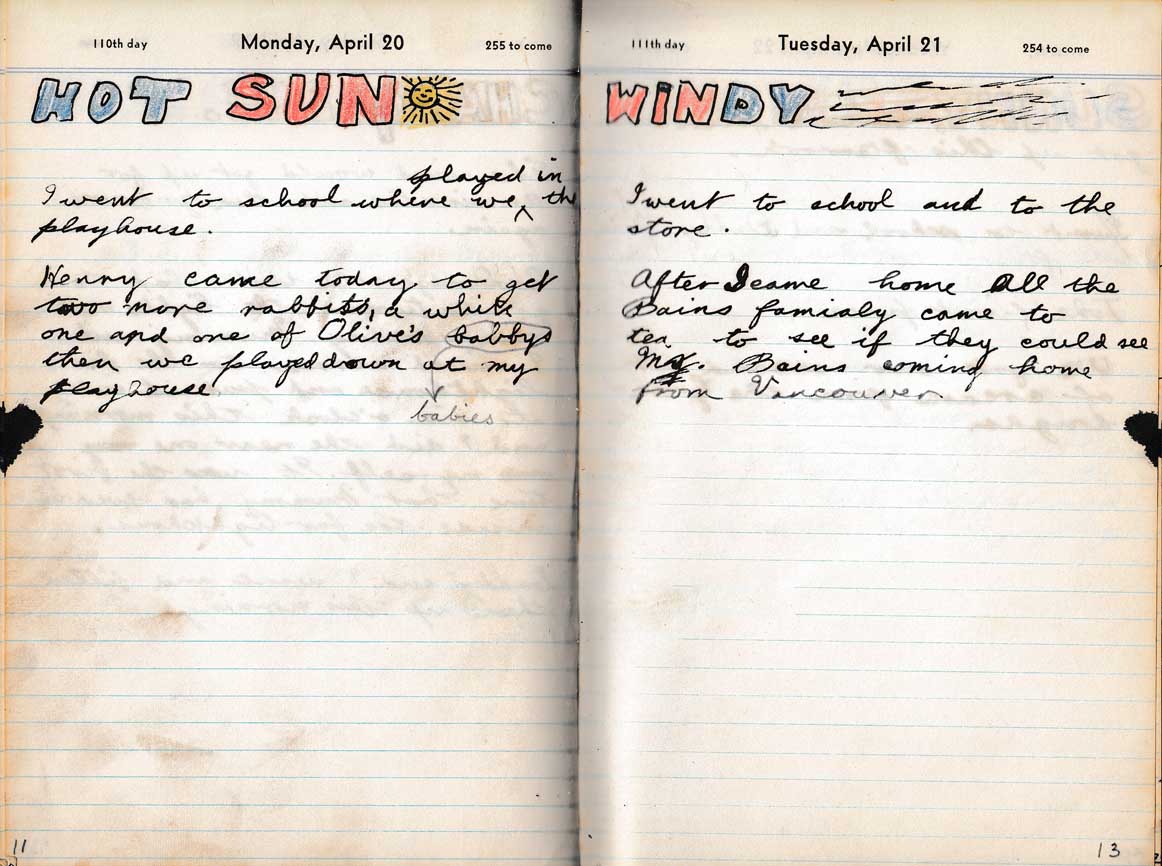 110th day Monday, April 20 255 to come
HOT SUN
played in
I went to school where we ^ the
playhouse.
Henry came today to get
two more rabbits, a white
one and one of Olive's babbys
then we played down at my
playhouse
babies
11
111th day Tuesday, April 21 254 to come
WINDY
I went to school and to the
store.
After I came home All the
Bains famialy came to
tea to see if they could see
Mr. Bains coming home
from Vancouver
13